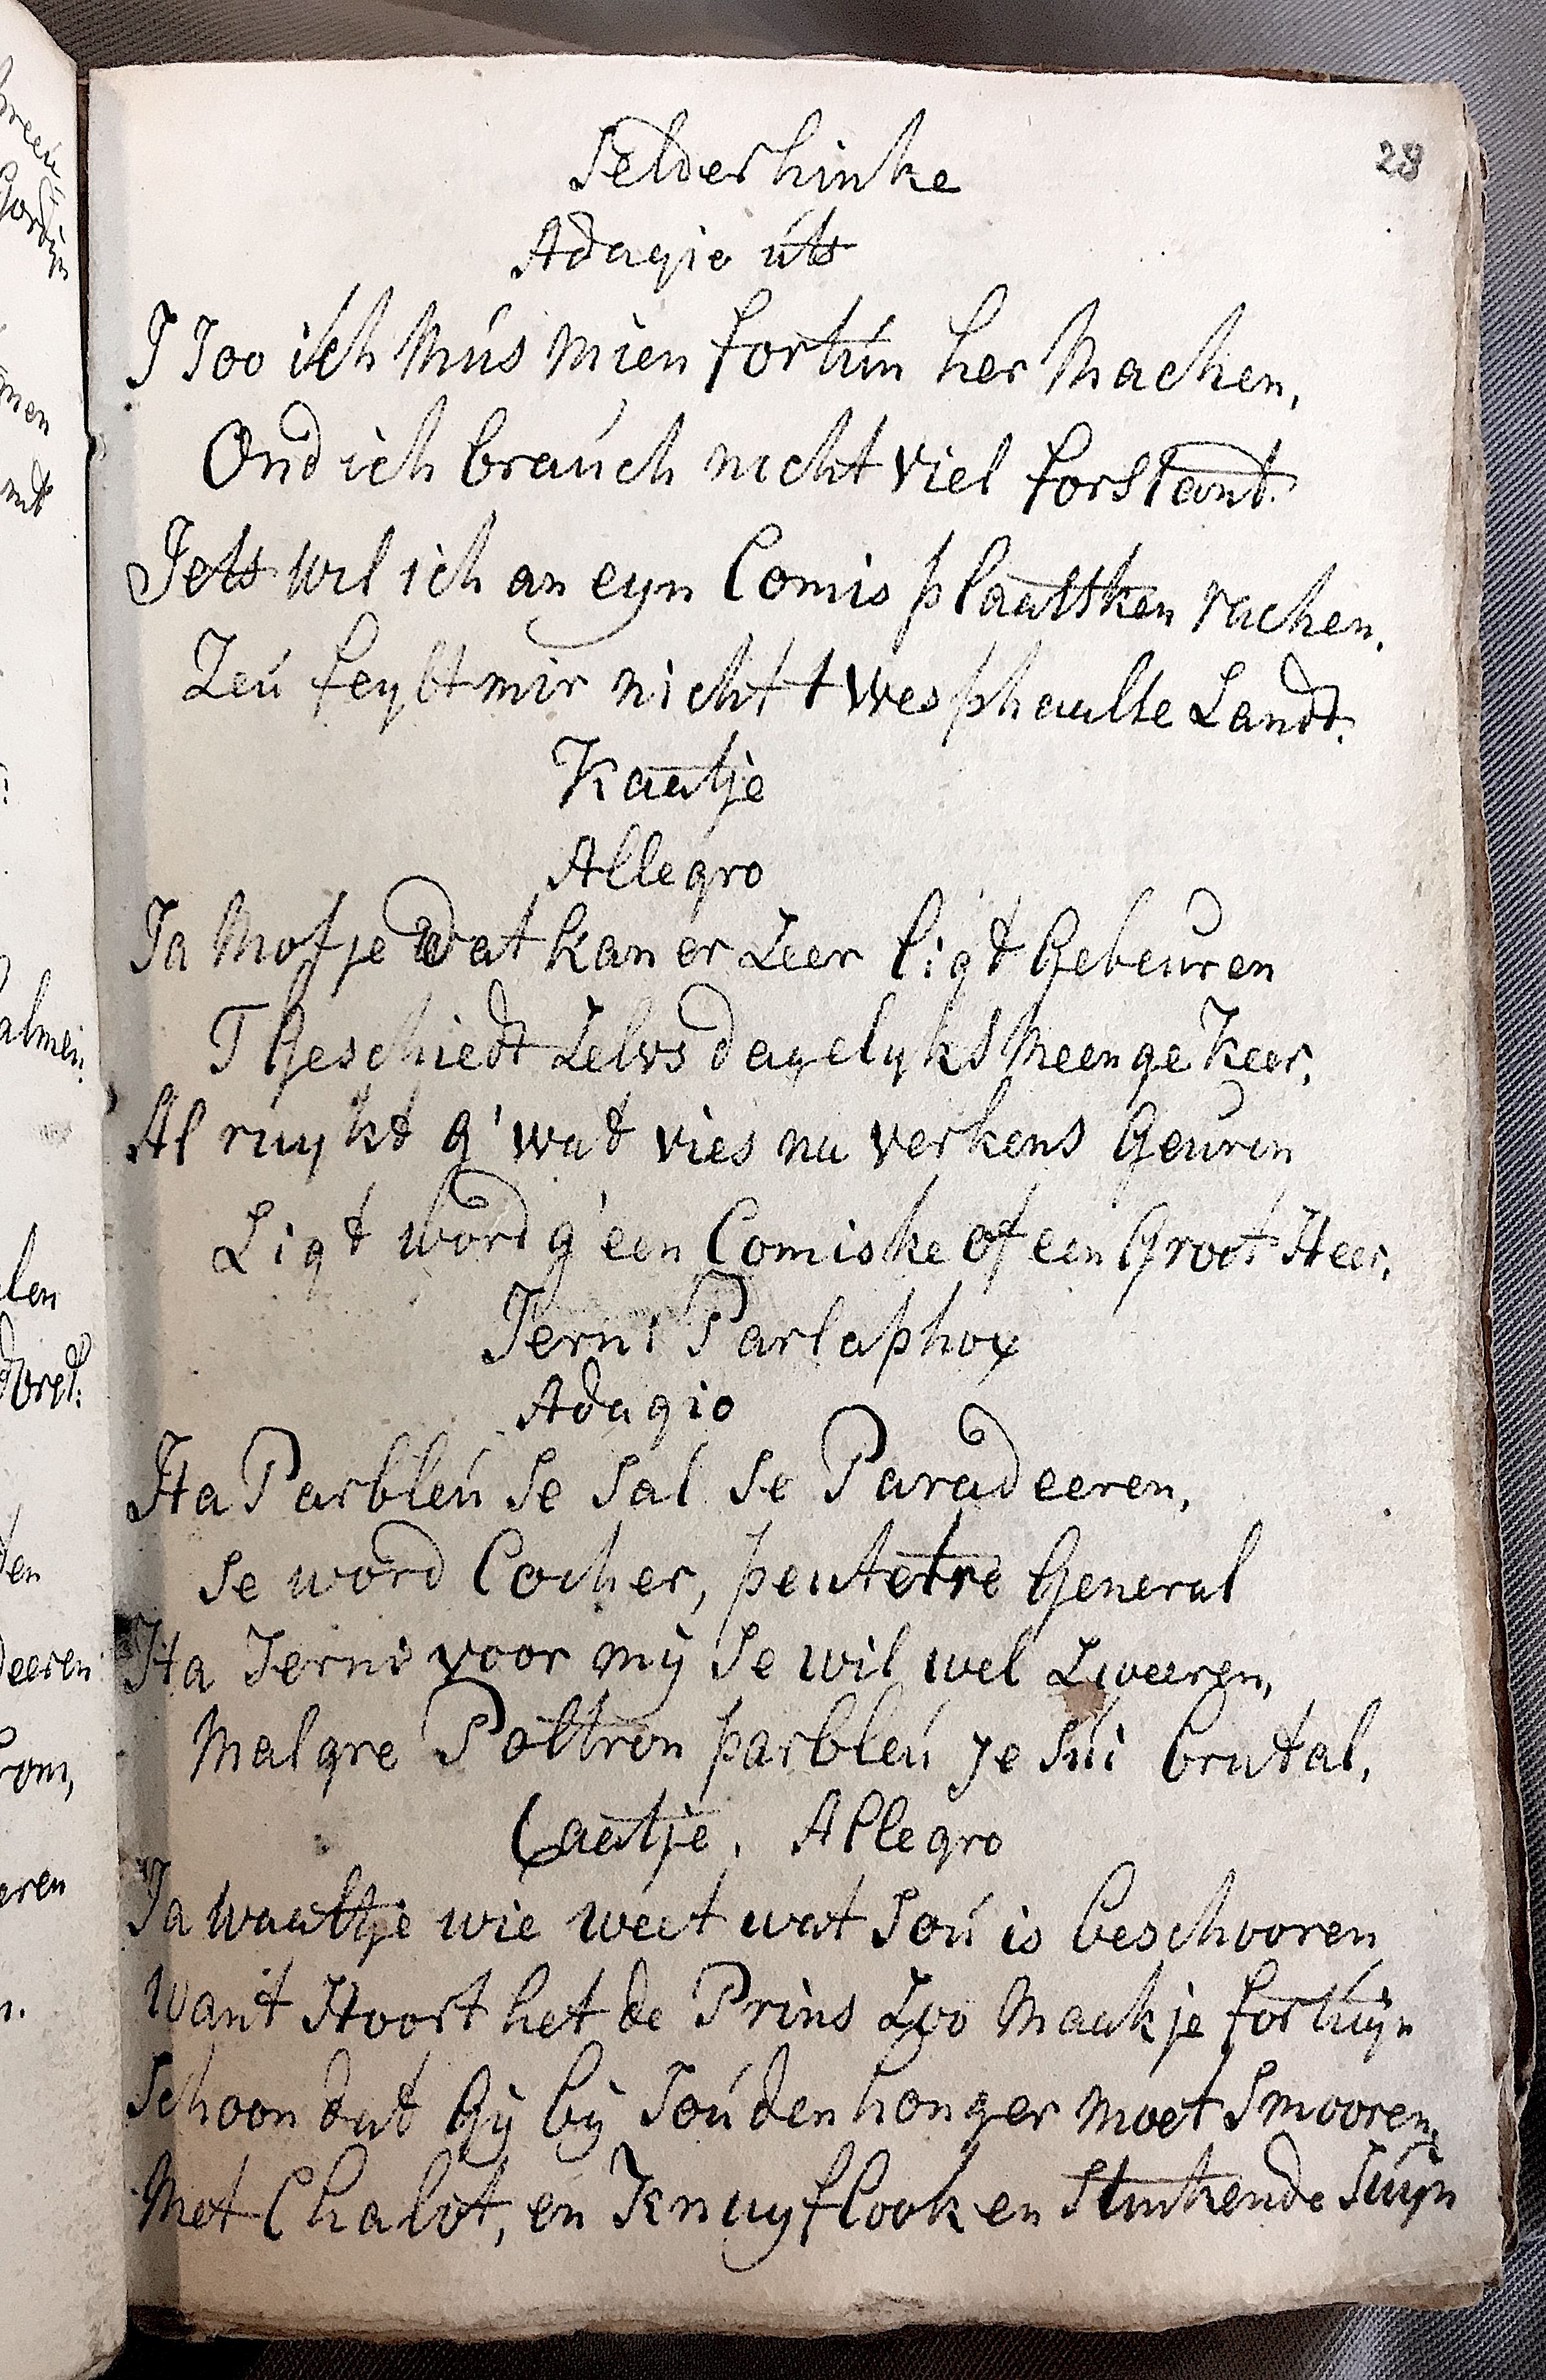 28
Selderhinke
Adagio úts
J Joo ich Mús mien fortún her Machen,
Ond ich braúch nicht viel forstant.
Jets wil ich an eyn Comis plaattken rachen.
Zeú feylt mir nicht t wesphaulse Landt.
Kaatje
Allegro
Ja Mofje dat kan er Zeer ligt Gebeuren
T Geschiedt Zelvs dagelyks Meenge Keer,
Al ruykt g' wat vies na verkens Geuren
Ligt word g'een Comiske of een Groot Heer,
Jerni Parlaphox
Adagio
Ha Parbleú Se Sal Se Paradeeren,
Se word Cocher, peutetre General
Ha Jerni voor mÿ Se wil wel Zweeren,
Malgre Poltron parbleú je Súi brutal,
Caatje, Allegro
Ja waaltje wie weet wat Joú is beschooren
Want Hoort het de Prins Zoo Maakje fortúÿn
Schoon dat Gÿ bÿ Joú den honger Moet Smooren,
Met Chalot, en Knuyflook en Stinkende Júÿn